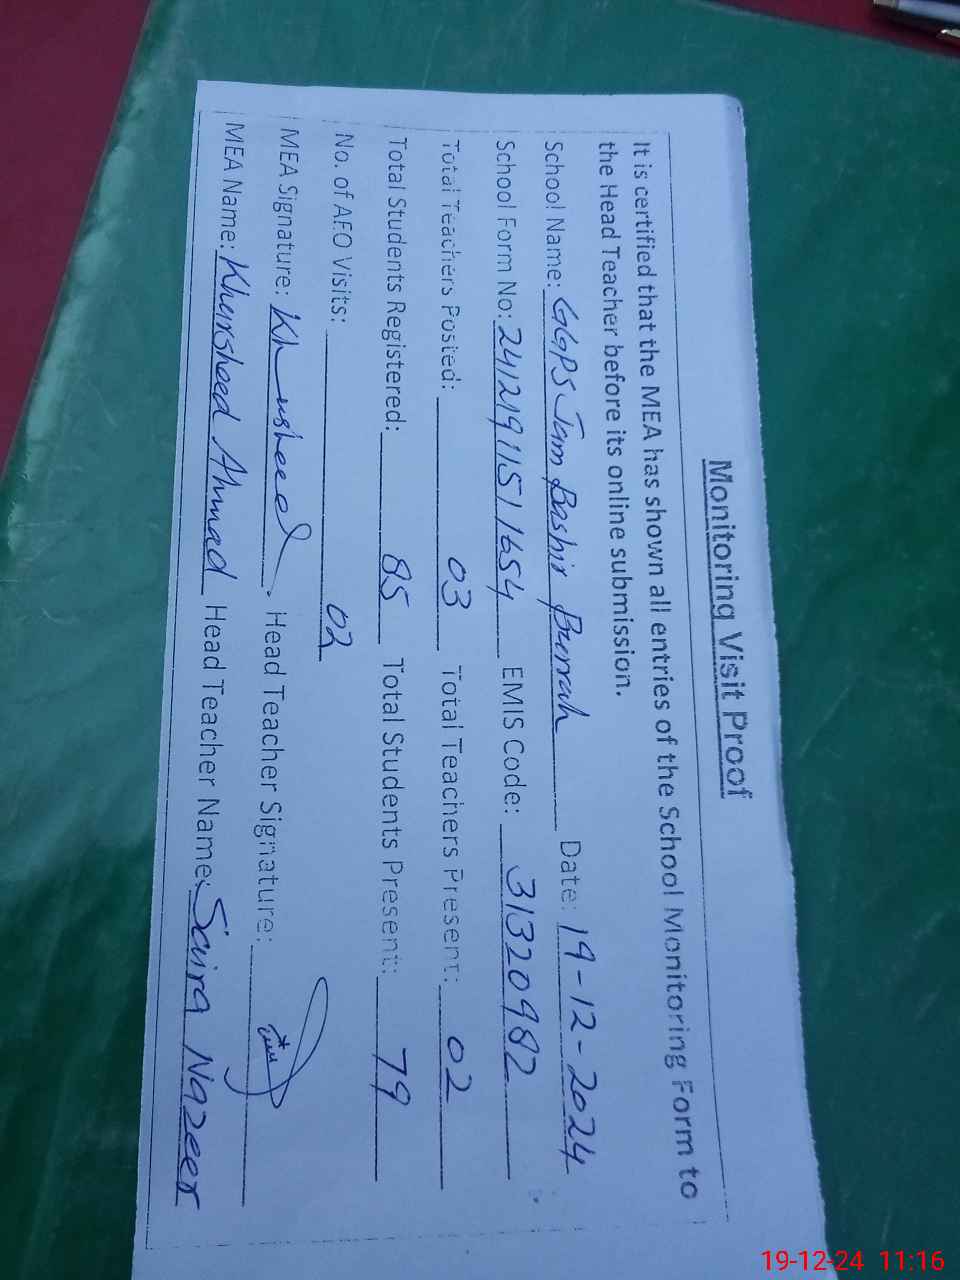 Monitoring Visit Proof
It is certified that the MEA has shown all entries of the School Monitoring Form to
the Head Teacher before its online submission.
School Name: GGPS Jam Bashir Burrah Date: 19-12-2024
School Form No: 24121911511654 EMIS Code: 31320982
Total Teachers Posted: 03 Total Teachers Present: 02
Total Students Registered: 85 Total Students Present: 79
No. of AEO Visits: 02
MEA Signature: Khursheed Head Teacher Signature:
MEA Name: Khursheed Ahmad Head Teacher Name: Saira Nazeer
19-12-24 11:16